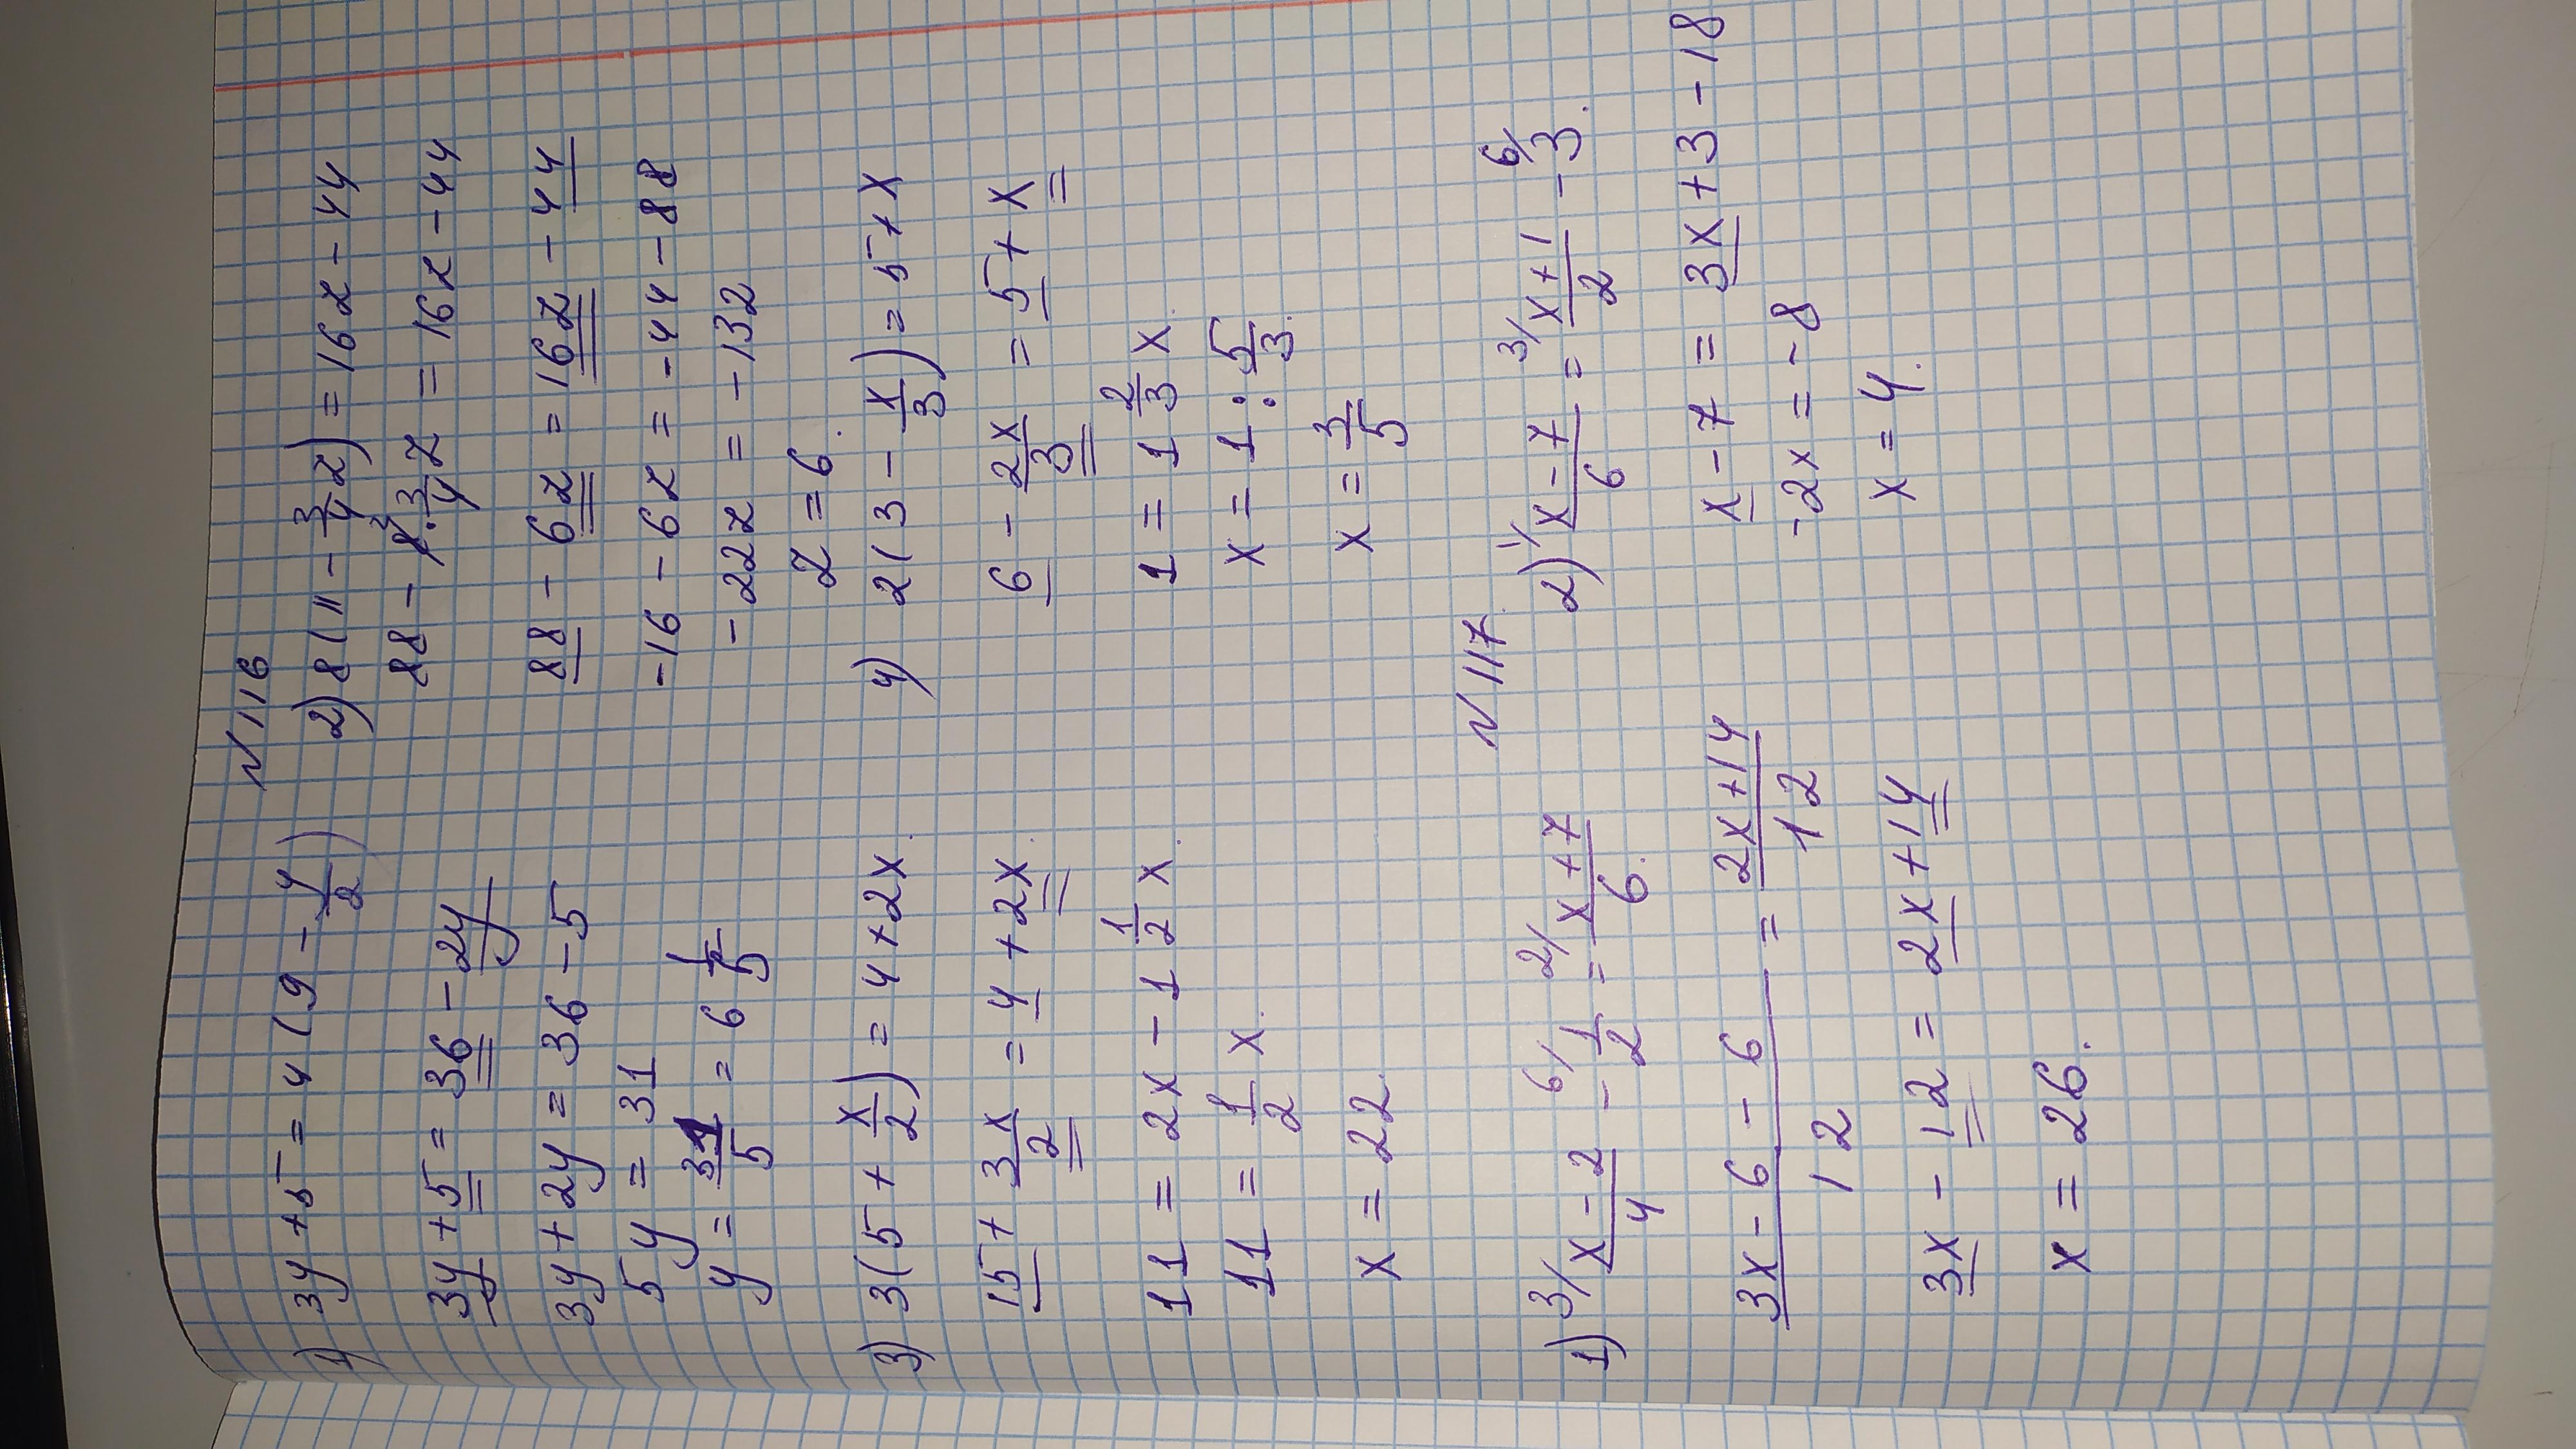 N 116
1) 3y + 5 = 4 (9 - y/2)
3y + 5 = 36 - 2y
3y + 2y = 36 - 5
5y = 31
y = 31/5 = 6 1/5
2) 8(11 - 3/4 z) = 16z - 44
88 - 8 · 3/4 z = 16z - 44
88 - 6z = 16z - 44
-16 - 6z = -44 - 88
-22z = -132
z = 6.
3) 3(5 + x/2) = 4 + 2x.
15 + 3x/2 = 4 + 2x.
11 = 2x - 1 1/2 x.
11 = 1/2 x.
x = 22.
4) 2(3 - x/3) = 5 + x
6 - 2x/3 = 5 + x
1 = 1 2/3 x.
x = 1 : 5/3.
x = 3/5
N 117.
1) 3/ x-2/4 - 6/ 1/2 = 2/ x+7/6.
3x - 6 - 6/12 = 2x + 14/12
3x - 12 = 2x + 14
x = 26.
2) 1/ x-7/6 = 3/ x+1/2 - 6/ 3.
x - 7 = 3x + 3 - 18
-2x = -8
x = 4.